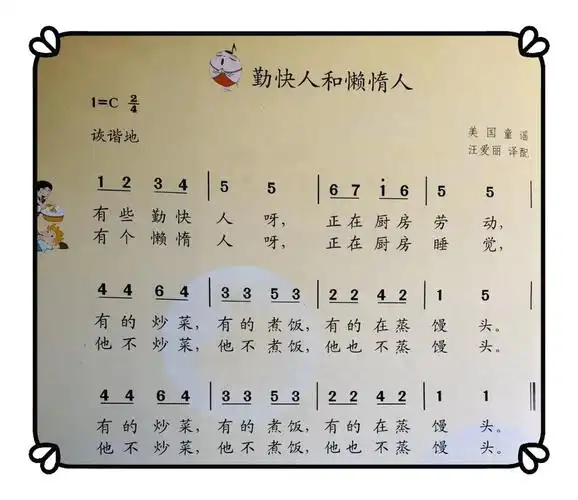 勤快人和懒惰人
1=C 2/4
诙谐地
美国童谣
汪爱丽 译配
1 2 3 4 | 5 5 | 6 7 i 6 | 5 5 |
有些勤快 人 呀, 正在厨房 劳 动,
有个懒惰 人 呀, 正在厨房 睡 觉,
4 4 6 4 | 3 3 5 3 | 2 2 4 2 | 1 5 |
有的炒菜, 有的煮饭, 有的在蒸 馒 头。
他不炒菜, 他不煮饭, 他也不蒸 馒 头。
4 4 6 4 | 3 3 5 3 | 2 2 4 2 | 1 1 ‖
有的炒菜, 有的煮饭, 有的在蒸 馒 头。
他不炒菜, 他不煮饭, 他也不蒸 馒 头。